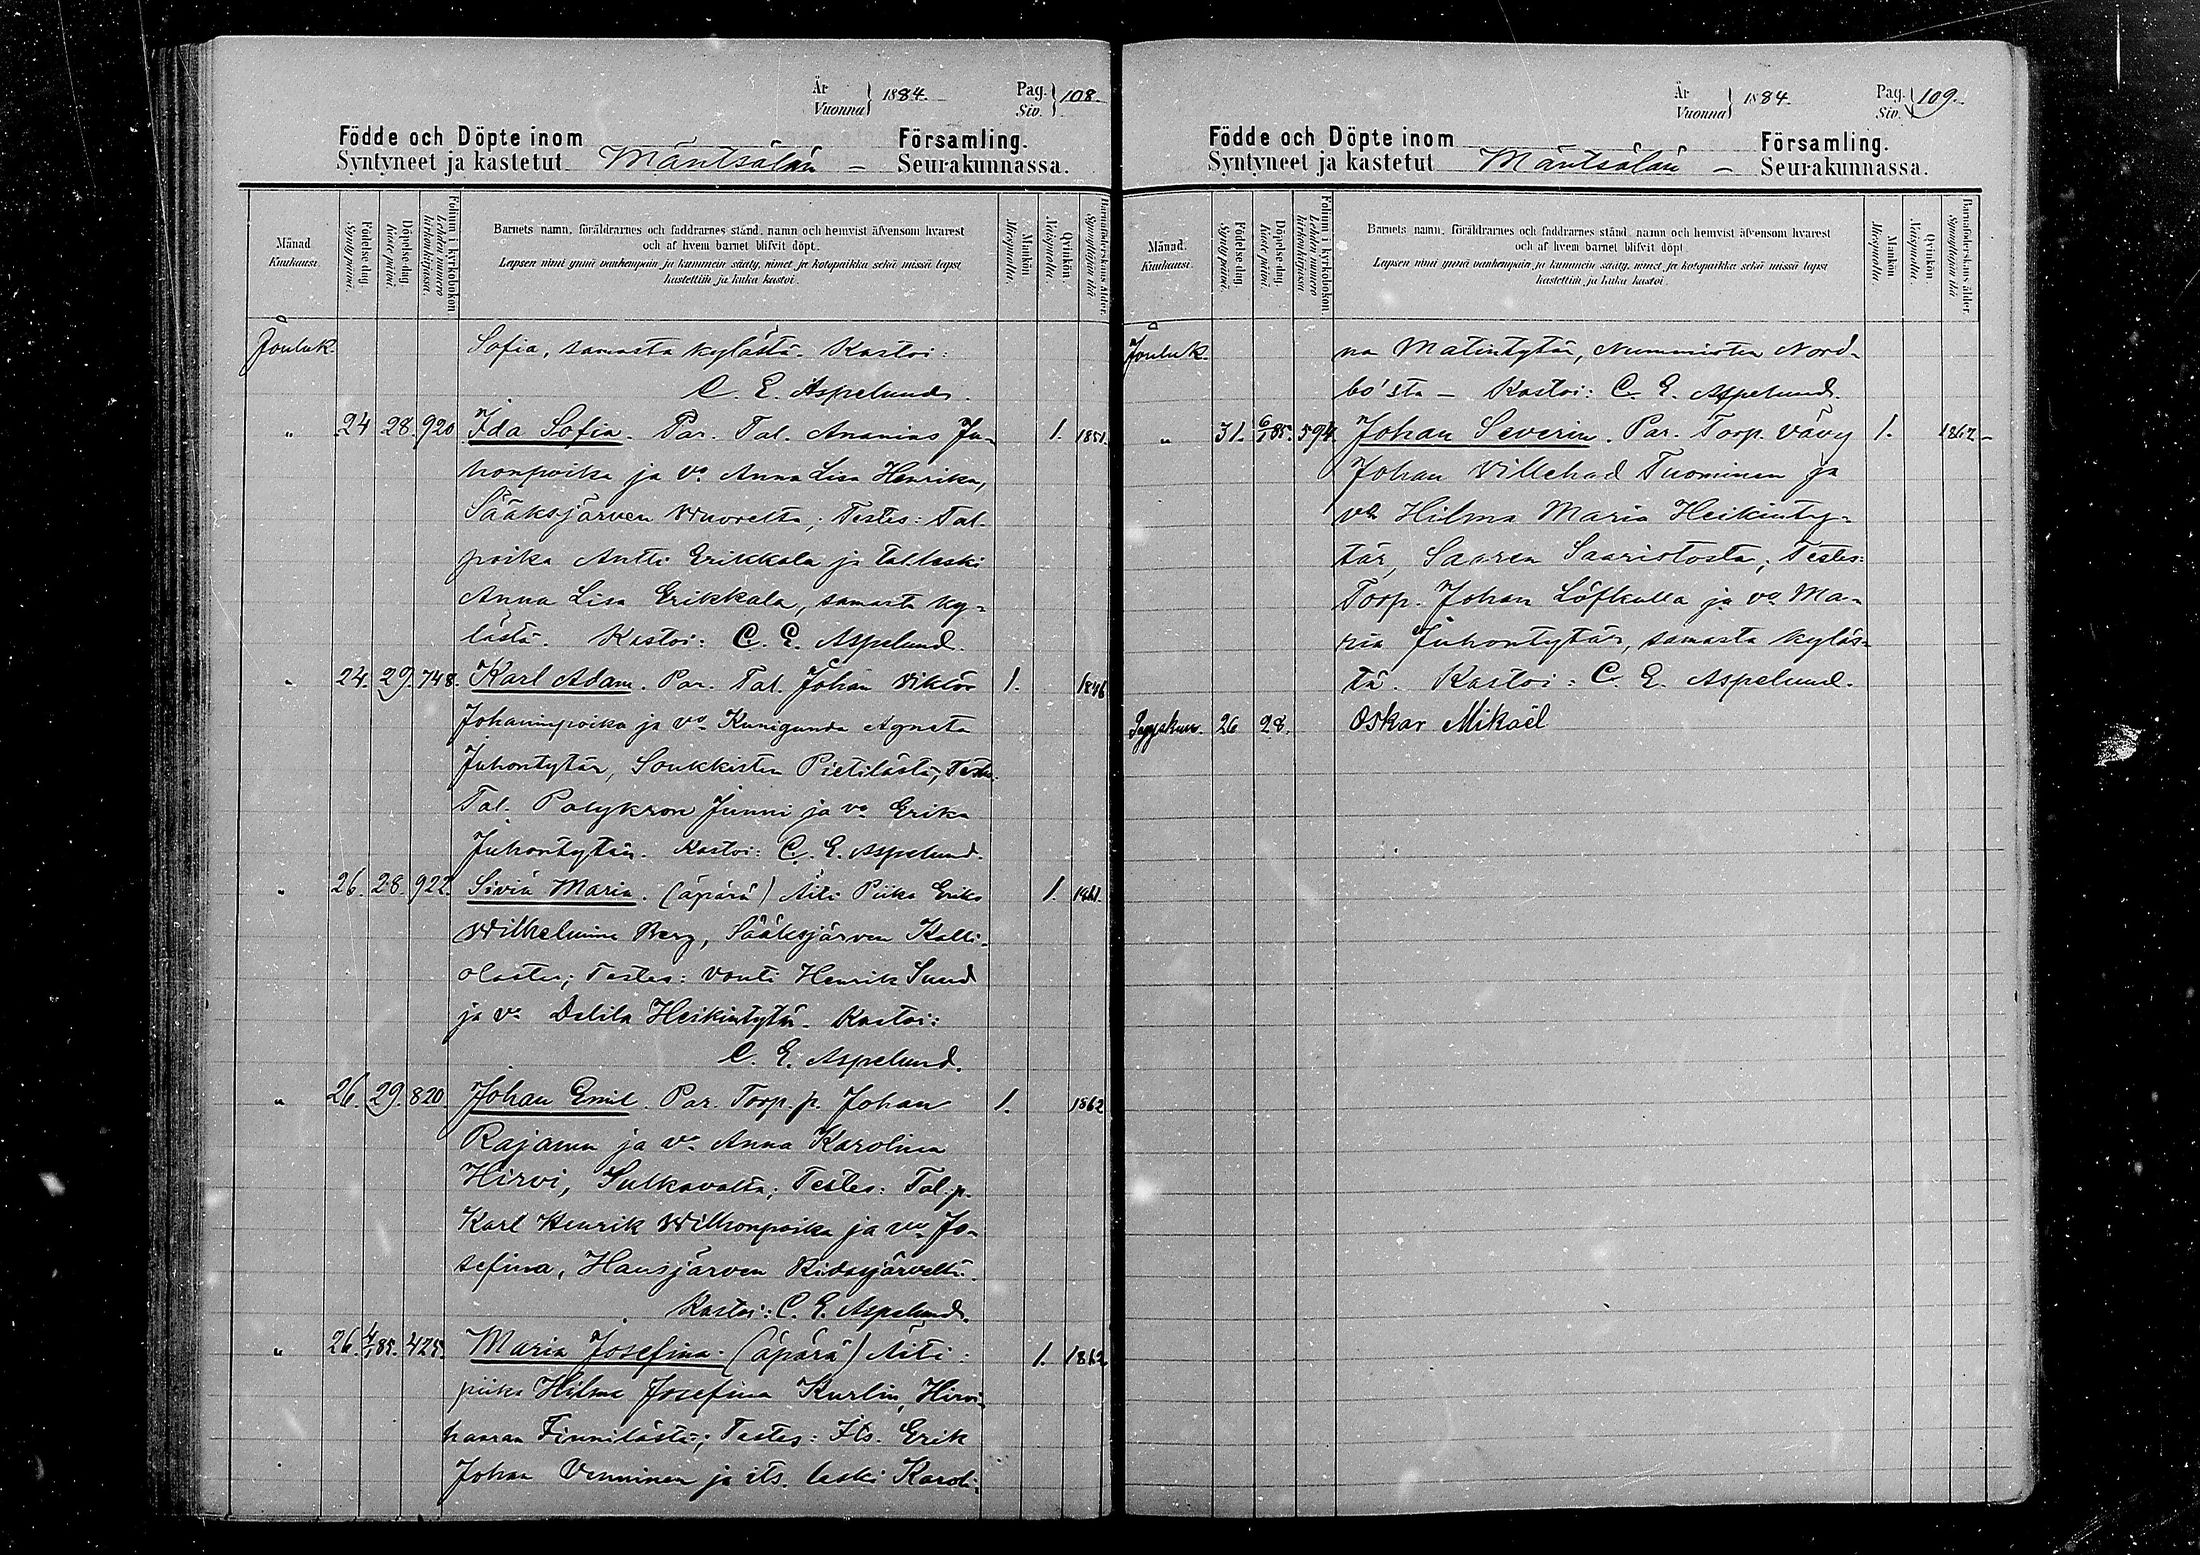 År Vuonna } 1884. Pag. Siv. } 108.
Födde och Döpte inom Församling.
Syntyneet ja kastetut Mäntsälän – Seurakunnassa.
Månad. Kuukausi.
Födelse dag. Syntymä päivä.
Döpelse dag. Kaste päivä.
Folium i kyrkobokon Lehden numero kirkonkirjassa.
Barnets namn, föräldrarnes och faddrarnes stånd, namn och hemvist äfvensom hvarest
och af hvem barnet blifvit döpt.
Lapsen nimi ynnä vanhempain ja kummein sääty, nimet ja kotopaikka sekä missä lapsi
kastettiin ja kuka kastoi.
Mankön. Miespuolta.
Qvinkön. Vaimopuolta.
Barnaföderskans ålder. Synnyttäjän ikä
Jouluk. Sofia, samasta kylästä. Kastoi:
C. E. Aspelund.
" 24 28. 920 Ida Sofia. Par. Tal. Ananias Ju- 1. 1851.
honpoika ja vo Anna Lisa Henrika,
Sääksjärven Wuorelta; Testes: Tal.
poika Antti Erikkala ja tal. leski
Anna Lisa Erikkala, samasta ky-
lästä. Kastoi: C. E. Aspelund.
" 24. 29. 748. Karl Adam. Par. Tal. Johan Viktor 1. 1846
Johaninpoika ja vo Kunigunda Agneta
Juhontytär, Soukkisten Pietilästä; Testes:
Tal. Polykron Junni ja vo Erika
Juhontytär. Kastoi: C. E. Aspelund.
" 26. 28. 922. Siviä Maria. (äpärä) Äiti Piika Erika 1.
Wilhelmina Berg, Sääksjärven Kalli-
olasta; Testes: Vouti Henrik Sund
ja vo Delila Heikintytär. Kastoi:
C. E. Aspelund.
" 26. 29. 820. Johan Emil. Par. Torp. p. Johan 1. 1862
Rajanen ja vo Anna Karolina
Hirvi, Sulkavalta; Testes: Tal. p.
Karl Henrik Wilhonpoika ja vo Jo-
sefina, Hausjärven Ridasjärveltä.
Kastoi: C. E. Aspelund.
" 26. 4/1 85. 425. Maria Josefina. (äpärä) Äiti: 1. 1862
piika Hilma Josefina Kurlin, Hirvi-
haaran Finnilästä; Testes: Its. Erik
Johan Venninen ja its. leski Karoli-
År Vuonna } 1884. Pag. Siv. } 109.
Födde och Döpte inom Församling.
Syntyneet ja kastetut Mäntsälän – Seurakunnassa.
Månad. Kuukausi.
Födelse dag. Syntymä päivä.
Döpelse dag. Kaste päivä.
Folium i kyrkobokon Lehden numero kirkonkirjassa.
Barnets namn, föräldrarnes och faddrarnes stånd, namn och hemvist äfvensom hvarest
och af hvem barnet blifvit döpt.
Lapsen nimi ynnä vanhempain ja kummein sääty, nimet ja kotopaikka sekä missä lapsi
kastettiin ja kuka kastoi.
Mankön. Miespuolta.
Qvinkön. Vaimopuolta.
Barnaföderskans ålder. Synnyttäjän ikä
Jouluk. na Matintytär, Nummisten Nord-
bo'sta – Kastoi: C. E. Aspelund.
" 31. 6/1 85. 594. Johan Severin. Par. Torp. vävy 1. 1862
Johan Villehad Tuominen ja
vo Hilma Maria Heikinty-
tär, Saaren Saaristosta; Testes:
Torp. Johan Löfkulla ja vo Ma-
ria Juhontytär, samasta kyläs-
tä. Kastoi: C. E. Aspelund.
Syyskuu. 26 28. Oskar Mikaël